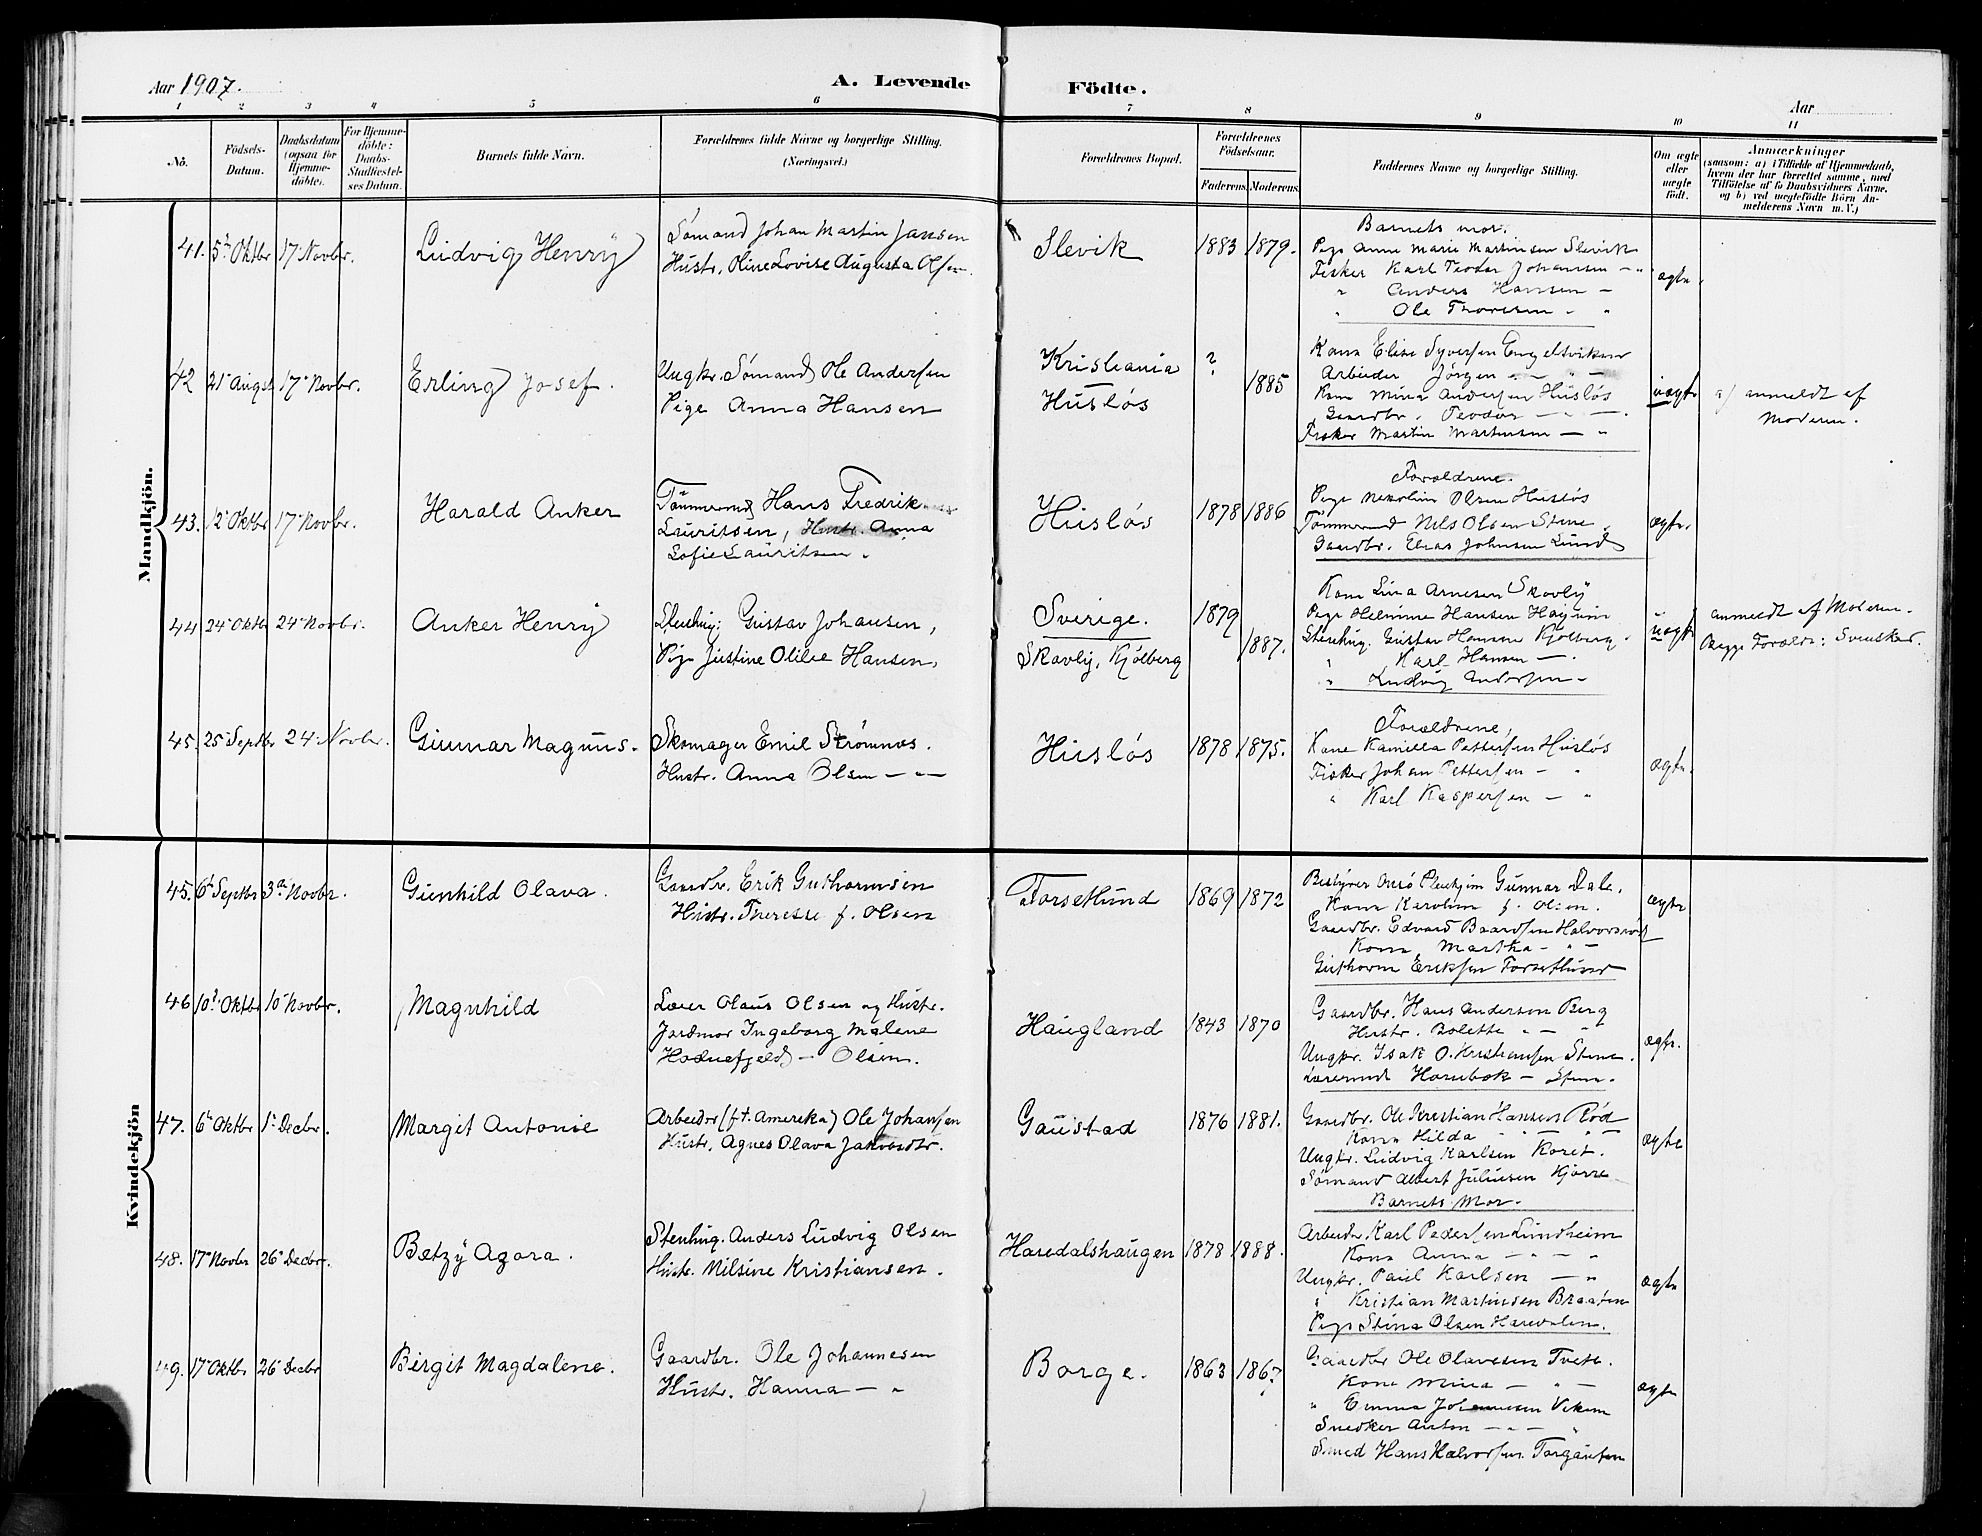 Aar 1907.
A. Levende Födte.
Aar
1 2 3 4 5 6 7 8 9 10 11
No.
Födsels-Datum.
Daabsdatum (ogsaa for Hjemme-döbte).
For Hjemme-döbte: Daabs-Stadfæstel-ses Datum.
Barnets fulde Navn.
Forældrenes fulde Navne og borgerlige Stilling. (Næringsvei.)
Forældrenes Bopæl.
Forældrenes Födselsaar.
Faderens. Moderens.
Faddernes Navne og borgerlige Stilling.
Om ægte eller uægte födt.
Anmærkninger
(saasom: a) i Tilfælde af Hjemmedaab, hvem der har forrettet samme, med Tilföielse af to Daabsvidners Navne. og b) ved uægtefödte Börn An-melderens Navn m.V.)
Mandkjön.
41. 5' Oktbr 17' Novbr. Ludvig Henry
Sømand Johan Martin Jansen
Hustr. Oline Lovise Augusta Olsen
Slevik 1883 1879.
Barnets mor.
Pige Anne Marie Martinsen Slevik
Fisker Karl Teodor Johansen — "
" Anders Hansen —
" Ole Thoresen - "
ægte.
42 21' Augst 17' Novbr. Erling Josef.
Ungkr. Sømand Ole Andersen
Pige Anna Hansen
Kristiania ?
Husløs 1885
Kone Elise Syversen Engelsviken
Arbeider Jørgen — " —
Kone Mina Andersen Husløs
Gaardbr. Teodor — " —
Fisker Martin Martinsen — "
uægte
a/ anmeldt af
Moderen.
43. 12' Oktbr 17' Novbr. Harald Anker
Tømmermd Hans Fredrik
Lauritsen, Hustr. Anna
Sofie Lauritsen.
Husløs 1878 1886
Forældrene.
Pige Nikoline Olsen Husløs
Tømmermd Nils Olsen Stene.
Gaardbr. Elias Johnsen Lund
ægte.
44 24' Oktbr 24' Novbr. Anker Henry
Stenhug; Gustav Johansen,
Pige Justine Otilie Hansen,
Sverige. 1879
Skovly, Kjølberg 1887.
Kone Lina Arnesen Skovly
Pige Helmine Hansen
Stenhug. Gustav Hansen Kjølberg.
" Karl Hansen —
" Ludvig Andersen -
uægte
anmeldt af Moderen.
Begge Forældr: Svensker.
45. 25' Septbr 24' Novbr. Gunnar Magnus.
Skomager Emil Strømnes.
Hustr. Anna Olsen — " —
Husløs 1878 1875.
Forældrene,
Kone Kamilla Pettersen Husløs
Fisker Johan Pettersen — "
" Karl Kaspersen — "
ægte.
Kvindekjön
45. 6' Septbr 3die Novbr. Gunhild Olava.
Gaardbr. Erik Guthormsen
Hustr. Therese f. Olsen
Torsetlund 1869 1872
Bestyrer Onsø Pleiehjem Gunnar Dale,
Kone Karoline f. Olsen.
Gaardbr. Edvard Baardsen Halvorsrød
Kone Martha — " —
Guthorm Eriksen Torsetlund
ægte
46 10' Oktbr 10' Novbr. Magnhild
Lærer Olaus Olsen og Hustr.
Jordmor Ingeborg Malene
Hodnefjeld — Olsen.
Haugland 1843 1870
Gaardbr. Hans Anderson Berg
Hustr. Bolette " — "
Ungkr. Isak O. Kristiansen Stene.
Lærerinde Hornbæk — Stene.
ægte.
47. 6' Oktbr 1' Decbr. Margit Antonie
Arbeider (f.t. Amerika) Ole Johansen
Hustr. Agnes Olava Jakobsdtr.
Gaustad 1876 1881.
Gaardbr. Ole Kristian Hansen Rød
Kone Hilda — " —
Ungkr. Ludvig Karlsen Koret.
Sømand Albert Juliusen Kjærre
Barnets Mor.
ægte
48. 17' Novbr 26' Decbr. Betzy Agora.
Stenhug. Anders Ludvig Olsen
Hustr. Nilsine Kristiansen.
Haredalshaugen 1878 1888.
Arbeider Karl Pedersen Lundheim
Kone Anna — " — "
Ungkr. Paul Karlsen — "
" Kristian Martinsen Braaten
Pige Stina Olsen Haredalen.
ægte
49. 17' Oktbr 26' Decbr Birgit Magdalene.
Gaardbr. Ole Johannesen
Hustr. Hanna — "
Borge. 1863 1867
Gaardbr Ole Olavesen Tvete.
Kone Mina — " —
" Emma Johannesen Viken
Snedker Anton — " — "
Smed Hans Halvorsen Torgauten
ægte